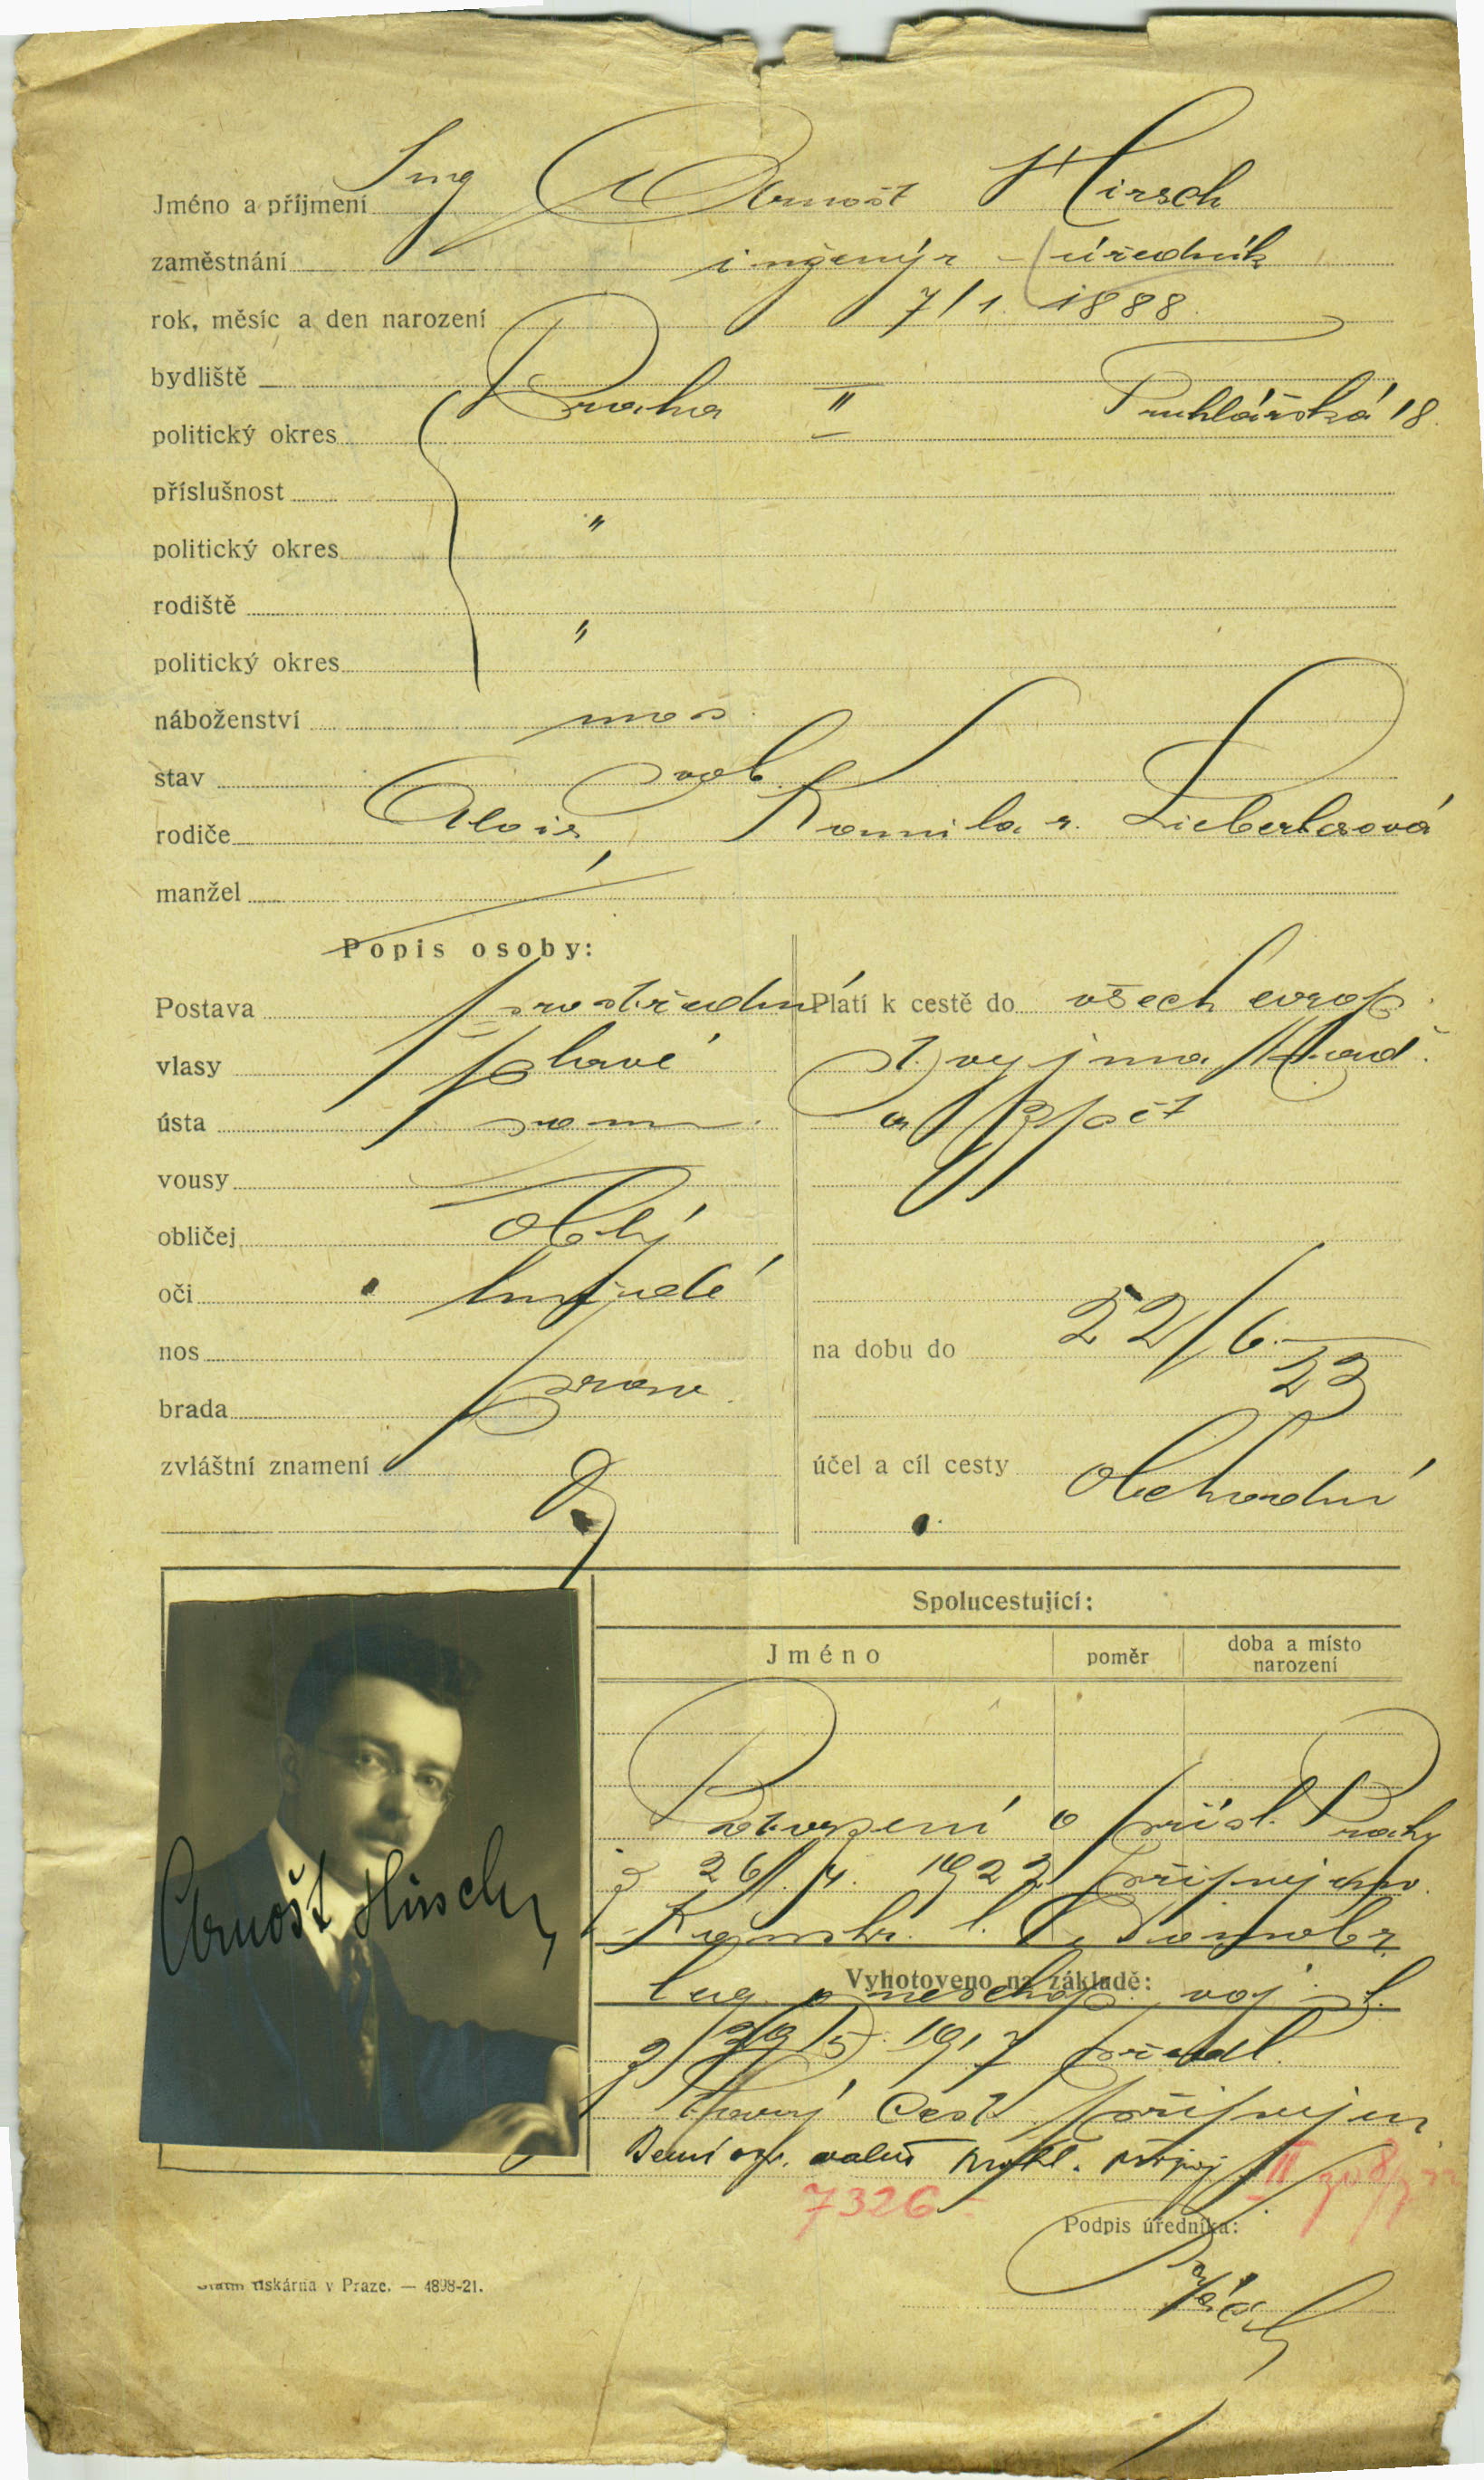 Jméno a příjmení Ing Arnošt Hirsch
zaměstnání inženýr - úředník
rok, měsíc a den narození 7/1. 1888.
bydliště Praha II Truhlářská 18.
politický okres
příslušnost "
politický okres
rodiště "
politický okres
náboženství mos.
stav svob.
rodiče Alois, Kamila r.
manžel
Popis osoby:
Postava prostřední
vlasy plavé
ústa
vousy
obličej oblý
oči hnědé
nos
brada
zvláštní znamení
Platí k cestě do všech evrop.
st. vyjma Maď.
a zpět
na dobu do 22/6. 23
účel a cíl cesty obchodní
Spolucestující:
Jméno poměr doba a místo narození
Potvrzení o přísl. Prahy
z 26/4. 1922
Vyhotoveno na základě:
voj. sl.
z 1917 předl.
cest.
7326
Podpis úředníka:
Arnošt Hirsch
Státní tiskárna v Praze. — 4898-21.